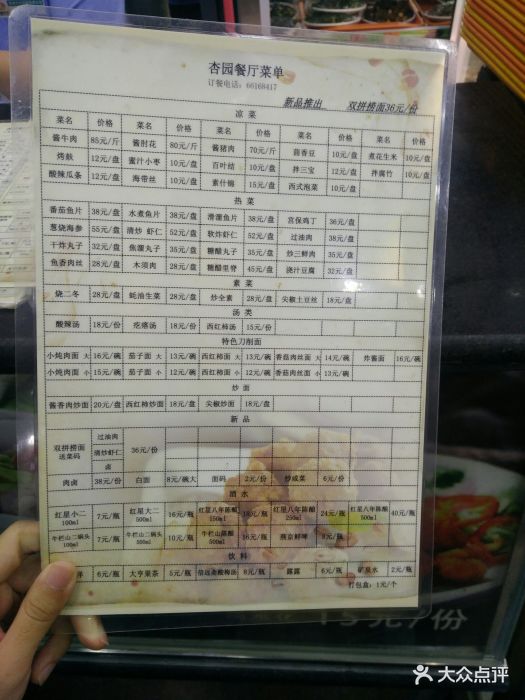 杏园餐厅菜单
订餐电话：66168417
新品推出 双拼捞面36元/份
凉菜
菜名 价格 菜名 价格 菜名 价格 菜名 价格 菜名 价格
酱牛肉 85元/斤 酱肘花 80元/斤 酱猪肉 70元/斤 茴香豆 10元/盘 煮花生米 10元/盘
烤麸 12元/盘 蜜汁小枣 10元/盘 百叶结 10元/盘 拌三宝 10元/盘 拌腐竹 10元/盘
酸辣瓜条 12元/盘 海带丝 10元/盘 素什锦 15元/盘 西式泡菜 10元/盘
热菜
番茄鱼片 38元/盘 水煮鱼片 38元/盘 滑溜鱼片 38元/盘 宫保鸡丁 36元/盘
葱烧海参 55元/盘 清炒虾仁 52元/盘 软炸虾仁 52元/盘 过油肉 38元/盘
干炸丸子 32元/盘 焦溜丸子 35元/盘 糖醋丸子 35元/盘 炒三鲜肉 35元/盘
鱼香肉丝 28元/盘 木须肉 28元/盘 糖醋里脊 45元/盘 浇汁豆腐 32元/盘
素菜
烧二冬 28元/盘 蚝油生菜 28元/盘 炒全素 28元/盘 尖椒土豆丝 18元/盘
汤类
酸辣汤 18元/份 疙瘩汤 18元/份 西红柿汤 15元/份
特色刀削面
小炖肉面 大 16元/碗 茄子面 大 13元/碗 西红柿面 大 13元/碗 香菇肉丝面 大 14元/碗 炸酱面 16元/碗
小炖肉面 小 15元/碗 茄子面 小 12元/碗 西红柿面 小 12元/碗 香菇肉丝面 小 13元/碗
炒面
酱香肉炒面 20元/盘 西红柿炒面 18元/盘 尖椒炒面 18元/盘
新品
双拼捞面送菜码 过油肉 清炒虾仁 卤 36元/份
肉卤 38元/份 白面 8元/碗大 面码 2元/份 炒咸菜 6元/份
酒水
红星小二 100ml 7元/瓶 红星大二 500ml 16元/瓶 红星八年陈酿 150ml 18元/瓶 红星八年陈酿 250ml 24元/瓶 红星八年陈酿 500ml 40元/瓶
牛栏山二锅头 100ml 7元/瓶 牛栏山二锅头 500ml 10元/瓶 牛栏山陈酿 500ml 16元/瓶 燕京鲜啤 8元/瓶
饮料
洋 6元/瓶 大亨果茶 5元/瓶 信远斋酸梅汤 8元/瓶 露露 6元/瓶 矿泉水 2元/瓶
打包盒：1元/个
15元/份
大众点评